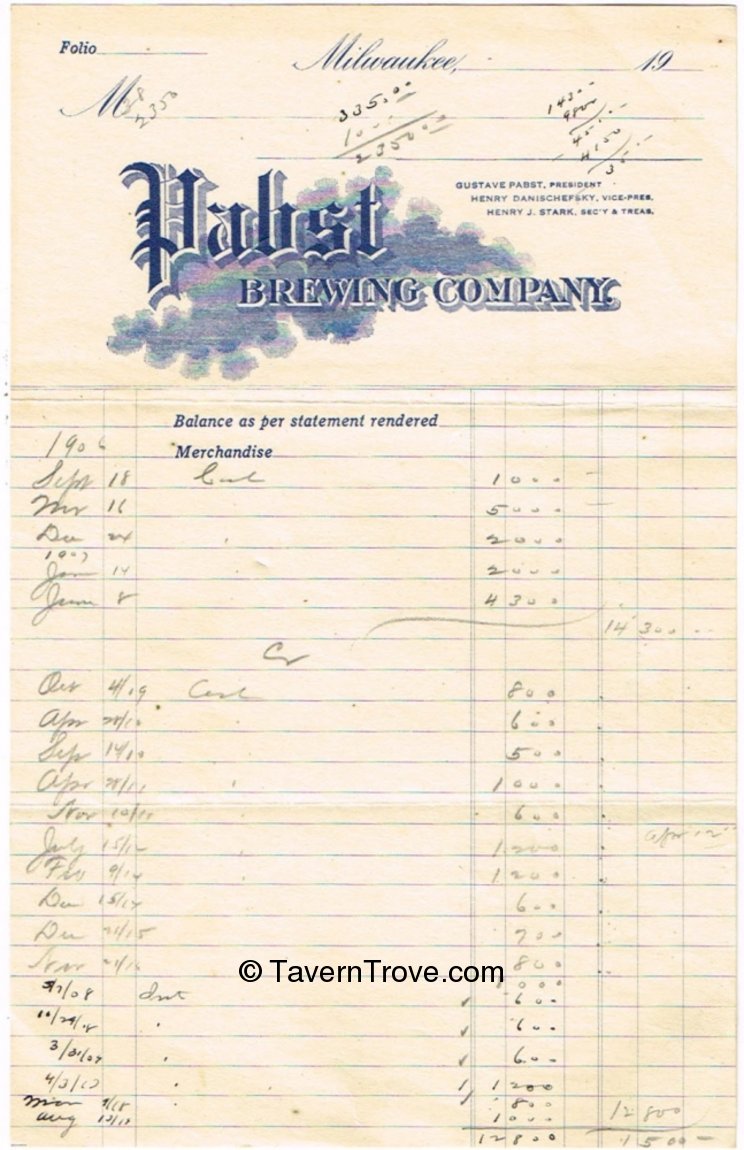 Folio
Milwaukee, 19
M 38
2350
335.00
10
2350 00
1430
9800
45
4150
35
Pabst
BREWING COMPANY.
GUSTAVE PABST, PRESIDENT
HENRY DANISCHEFSKY, VICE-PRES.
HENRY J. STARK, SEC'Y & TREAS.
Balance as per statement rendered
1906
Merchandise
Sept 18 Cash 1000
16 5000
Dec 24 2000
1907
Jan 14 2000
June 8 4300
14300
Cr
Oct 4/09 Cash 800
Apr 28/10 600
Sep 14/10 500
Apr 28/11 1000
Nov 10/11 600
Apr 12
July 15/12 1200
Feb 9/14 1200
Dec 15/14 600
Dec 21/15 700
Nov 21/16 800
1000
© TavernTrove.com
5/7/08 Int 600
10/29/08 600
3/31/09 600
4/3/13 1200
Mar 1/18 800 12800
Aug 13/18 1000
12800 1500